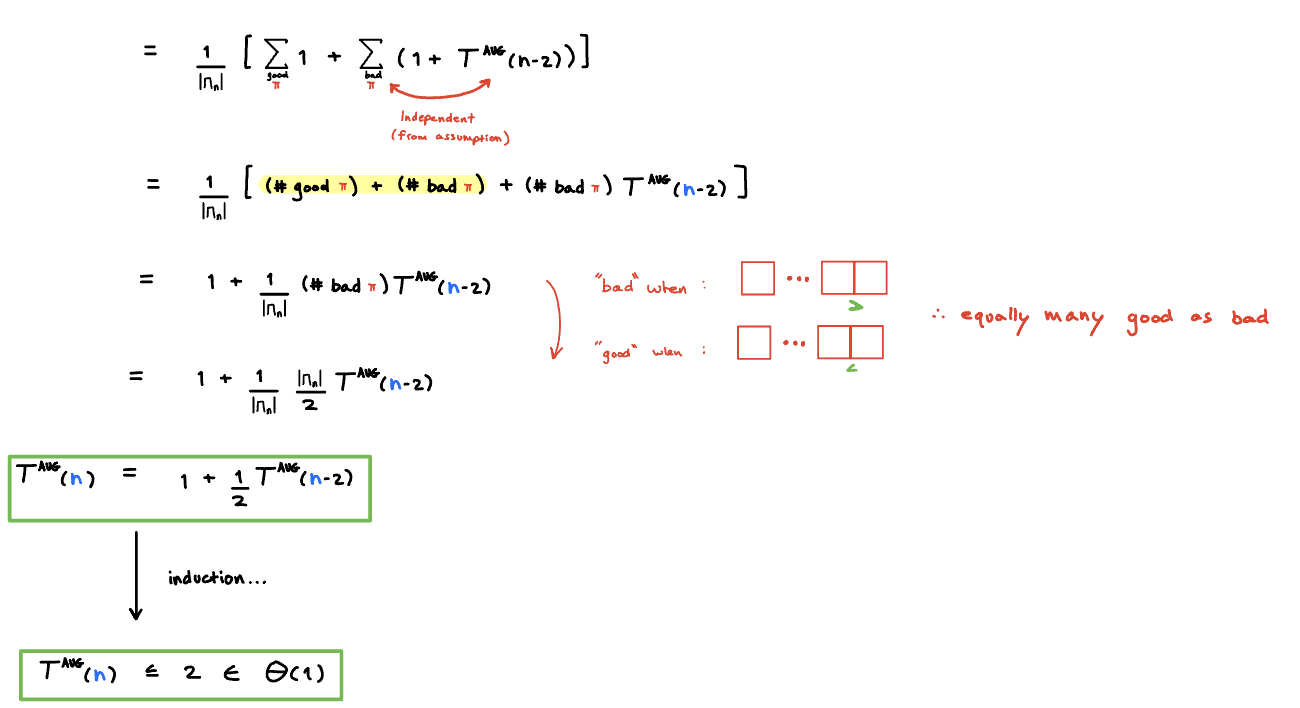 = 1/|Πₙ| [ ∑_{good π} 1 + ∑_{bad π} (1 + T^AVG(n-2)) ]
Independent
(from assumption)
= 1/|Πₙ| [ (# good π) + (# bad π) + (# bad π) T^AVG(n-2) ]
= 1 + 1/|Πₙ| (# bad π) T^AVG(n-2)
"bad" when : ... >
"good" when : ... <
∴ equally many good as bad
= 1 + 1/|Πₙ| |Πₙ|/2 T^AVG(n-2)
T^AVG(n) = 1 + 1/2 T^AVG(n-2)
induction...
T^AVG(n) ≤ 2 ∈ Θ(1)